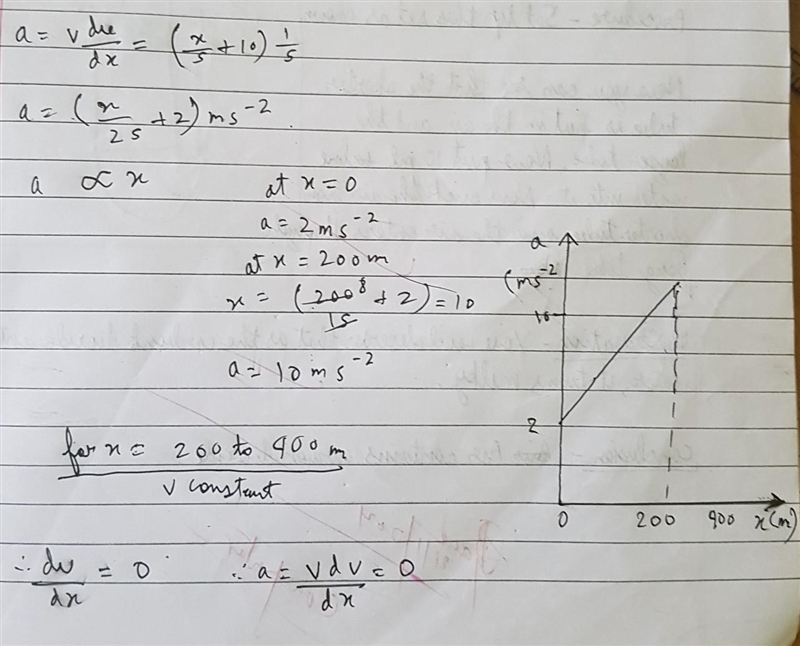 a = v dv/dx = (x/5 + 10) 1/5
a = (x/25 + 2) ms⁻²
a ∝ x
at x = 0
a = 2 ms⁻²
at x = 200 m
x = (200 8/15 + 2) = 10
a = 10 ms⁻²
for x = 200 to 400 m
v constant
∴ dv/dx = 0 ∵ a = v dv/dx = 0
a
(ms⁻²
10
2
0 200 400 x(m)